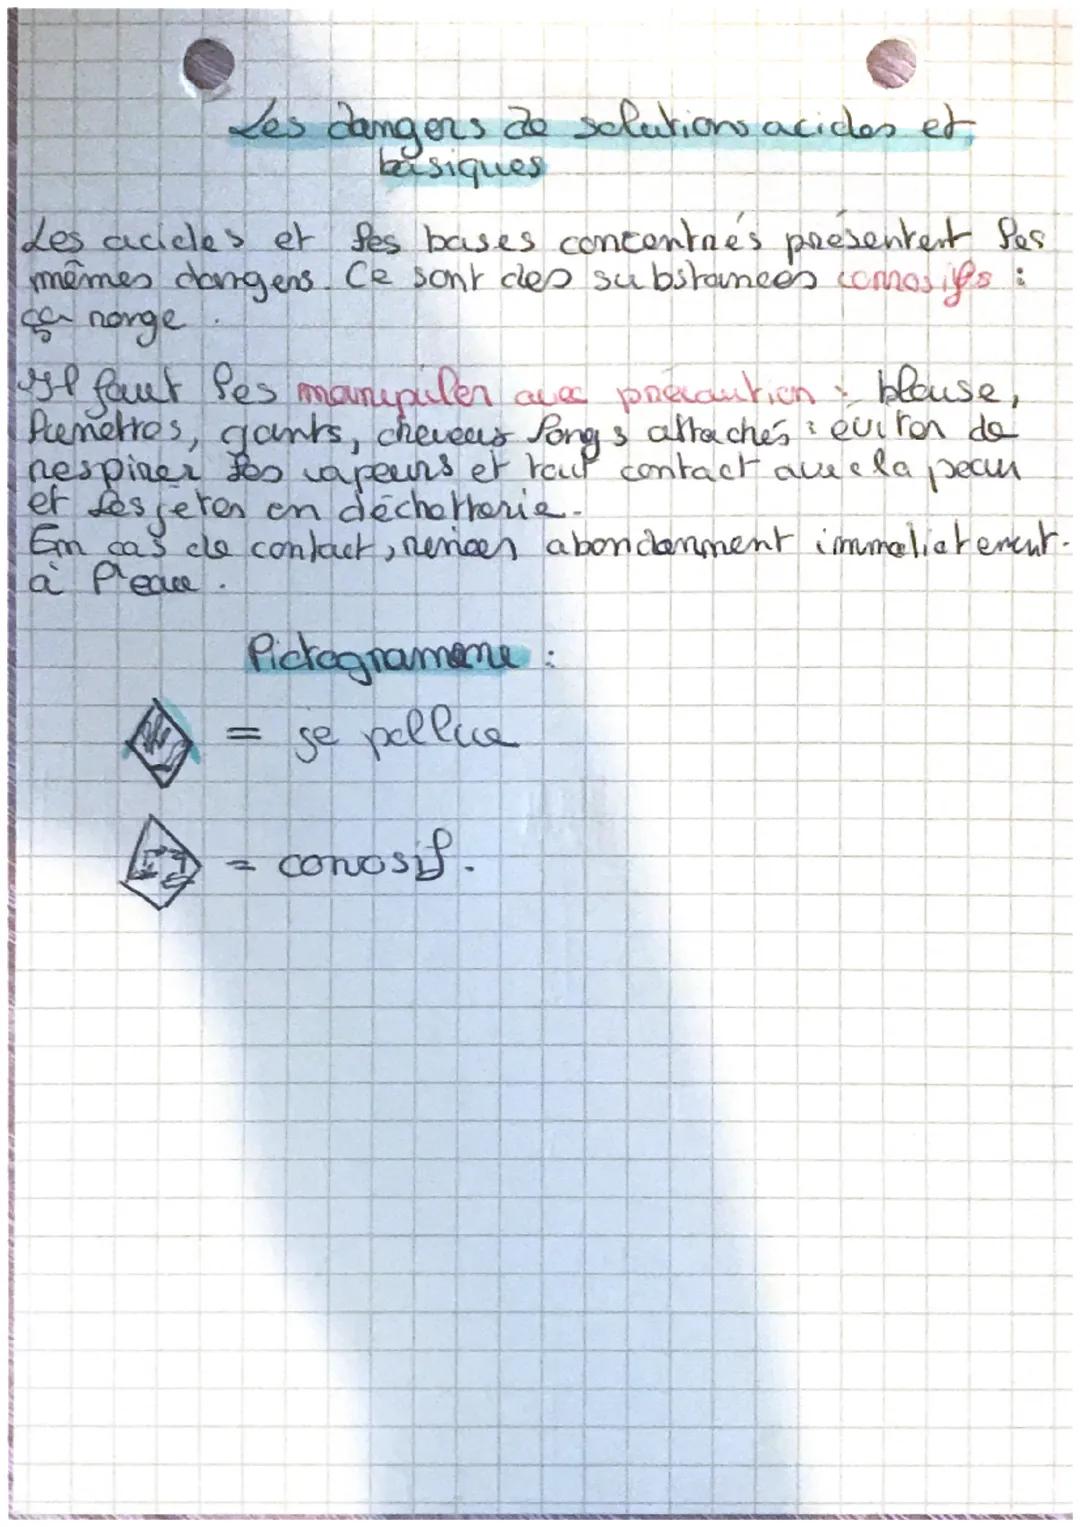 Les dangers de solutions acides et
basiques
Les acides et les bases concentrés présentent les
mêmes dangers. Ce sont des substances corrosifs :
ça ronge.
Il faut les manipuler avec précaution : blouse,
lunettes, gants, cheveux longs attachés : éviter de
respirer les vapeurs et tout contact avec la peau
et les jeter en déchetterie.
En cas de contact, rincer abondamment immédiatement
à l'eau.
Pictogramme :
= je pollue
= corrosif.